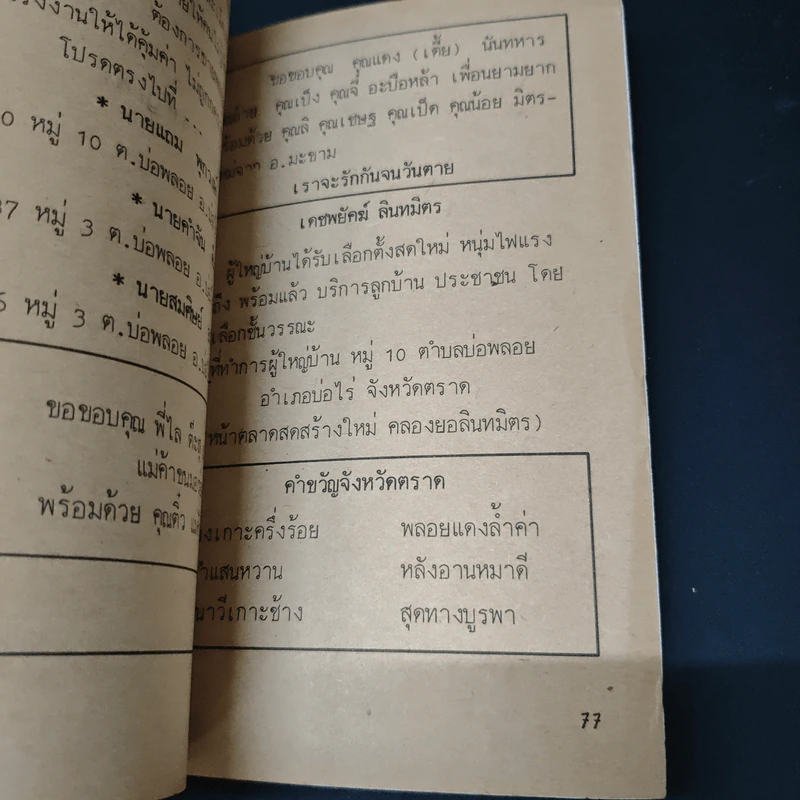 ต้องการขาย
งานให้ได้คุ้มค่า
โปรดตรงไปที่ ---
* นายแถม
0 หมู่ 10 ต.บ่อพลอย อ.
* นายคำจัน
37 หมู่ 3 ต.บ่อพลอย อ.
* นายสมศิษย์
6 หมู่ 3 ต.บ่อพลอย อ.
ขอขอบคุณ พี่ไล
แม่ค้าขนม
พร้อมด้วย คุณติ๋ว
ขอขอบคุณ คุณแดง (เตี้ย) นันทหาร
คุณเป็ง คุณจี๋ อะป๊อหล้า เพื่อนยามยาก
ร้อมด้วย คุณลิ คุณเชษฐ คุณเป็ด คุณน้อย มิตร-
หม่จาก อ.มะขาม
เราจะรักกันจนวันตาย
เดชพยัคฆ์ ลินทมิตร
ผู้ใหญ่บ้านได้รับเลือกตั้งสดใหม่ หนุ่มไฟแรง
ถึง พร้อมแล้ว บริการลูกบ้าน ประชาชน โดย
เลือกชั้นวรรณะ
ที่ทำการผู้ใหญ่บ้าน หมู่ 10 ตำบลบ่อพลอย
อำเภอบ่อไร่ จังหวัดตราด
หน้าตลาดสดสร้างใหม่ คลองยอลินทมิตร)
คำขวัญจังหวัดตราด
งเกาะครึ่งร้อย พลอยแดงล้ำค่า
ำแสนหวาน หลังอานหมาดี
นาวีเกาะช้าง สุดทางบูรพา
77